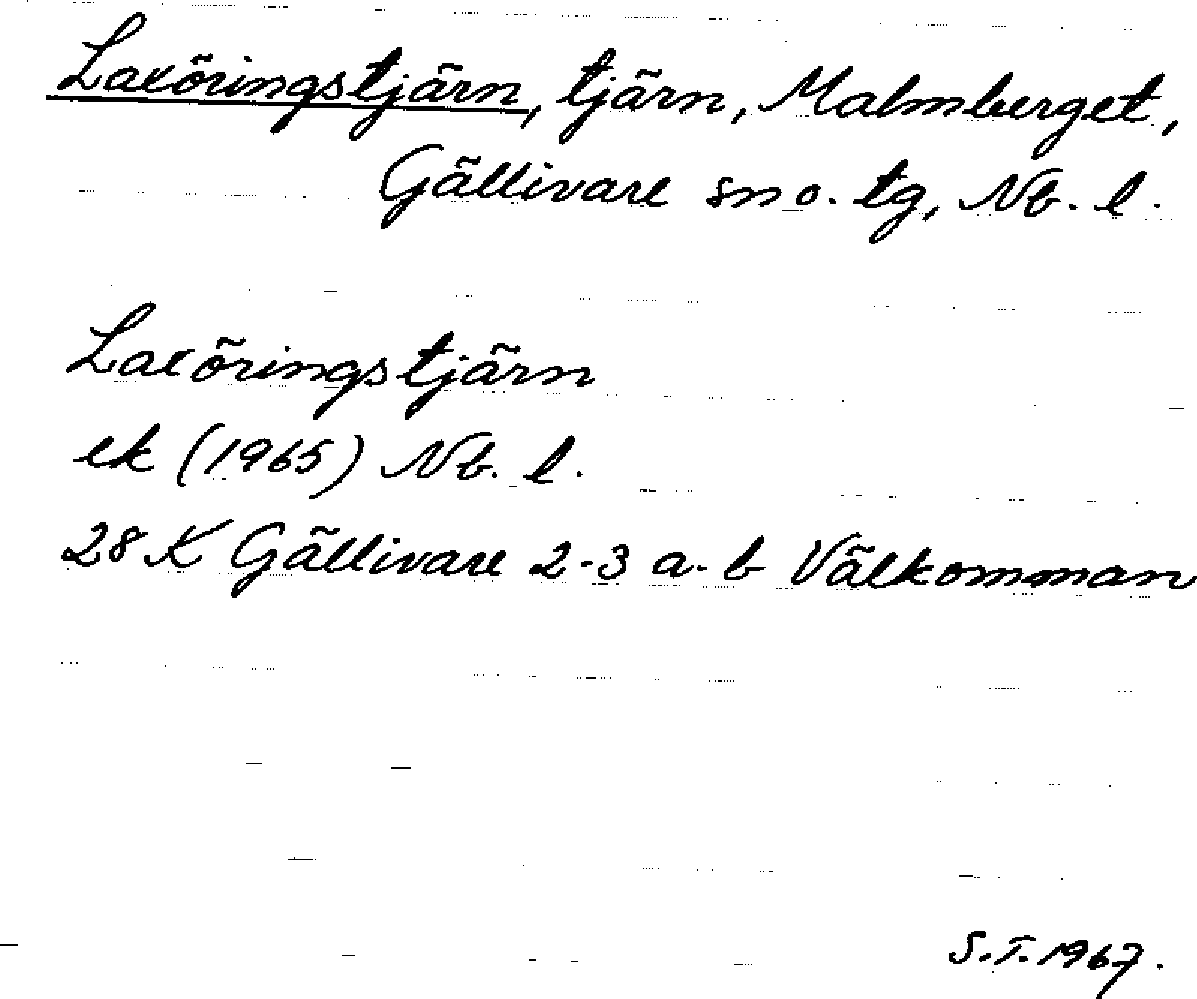 Laxöringstjärn, tjärn, Malmberget,
Gällivare sn o. tg, Nb. l.
Laxöringstjärn
ek (1965) Nb. l.
28 K Gällivare 2-3 a-b Välkomman
S.T. 1967.